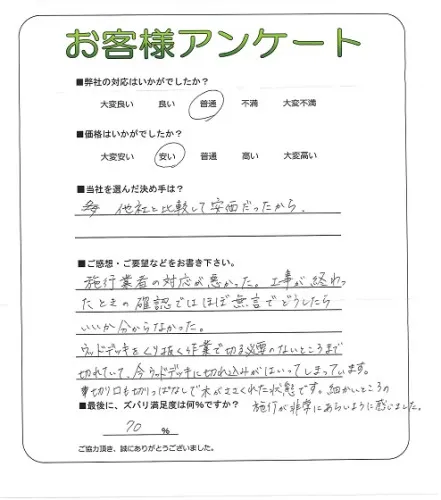 お客様アンケート
■弊社の対応はいかがでしたか？
大変良い 良い 普通 不満 大変不満
■価格はいかがでしたか？
大変安い 安い 普通 高い 大変高い
■当社を選んだ決め手は？
他社と比較して安価だったから.
■ご感想・ご要望などをお書き下さい。
施行業者の対応が悪かった。工事が終わっ
たときの確認ではほぼ無言でどうしたら
いいか分からなかった。
ウッドデッキをくり抜く作業で切る必要のないところまで
切れていて、今ウッドデッキに切れ込みがはいってしまっています。
切り口も切りっぱなしで木がささくれた状態です。細かいところの
施行が非常にあらいように感じました。
■最後に、ズバリ満足度は何%ですか？
70 %
ご協力頂き、誠にありがとうございました。